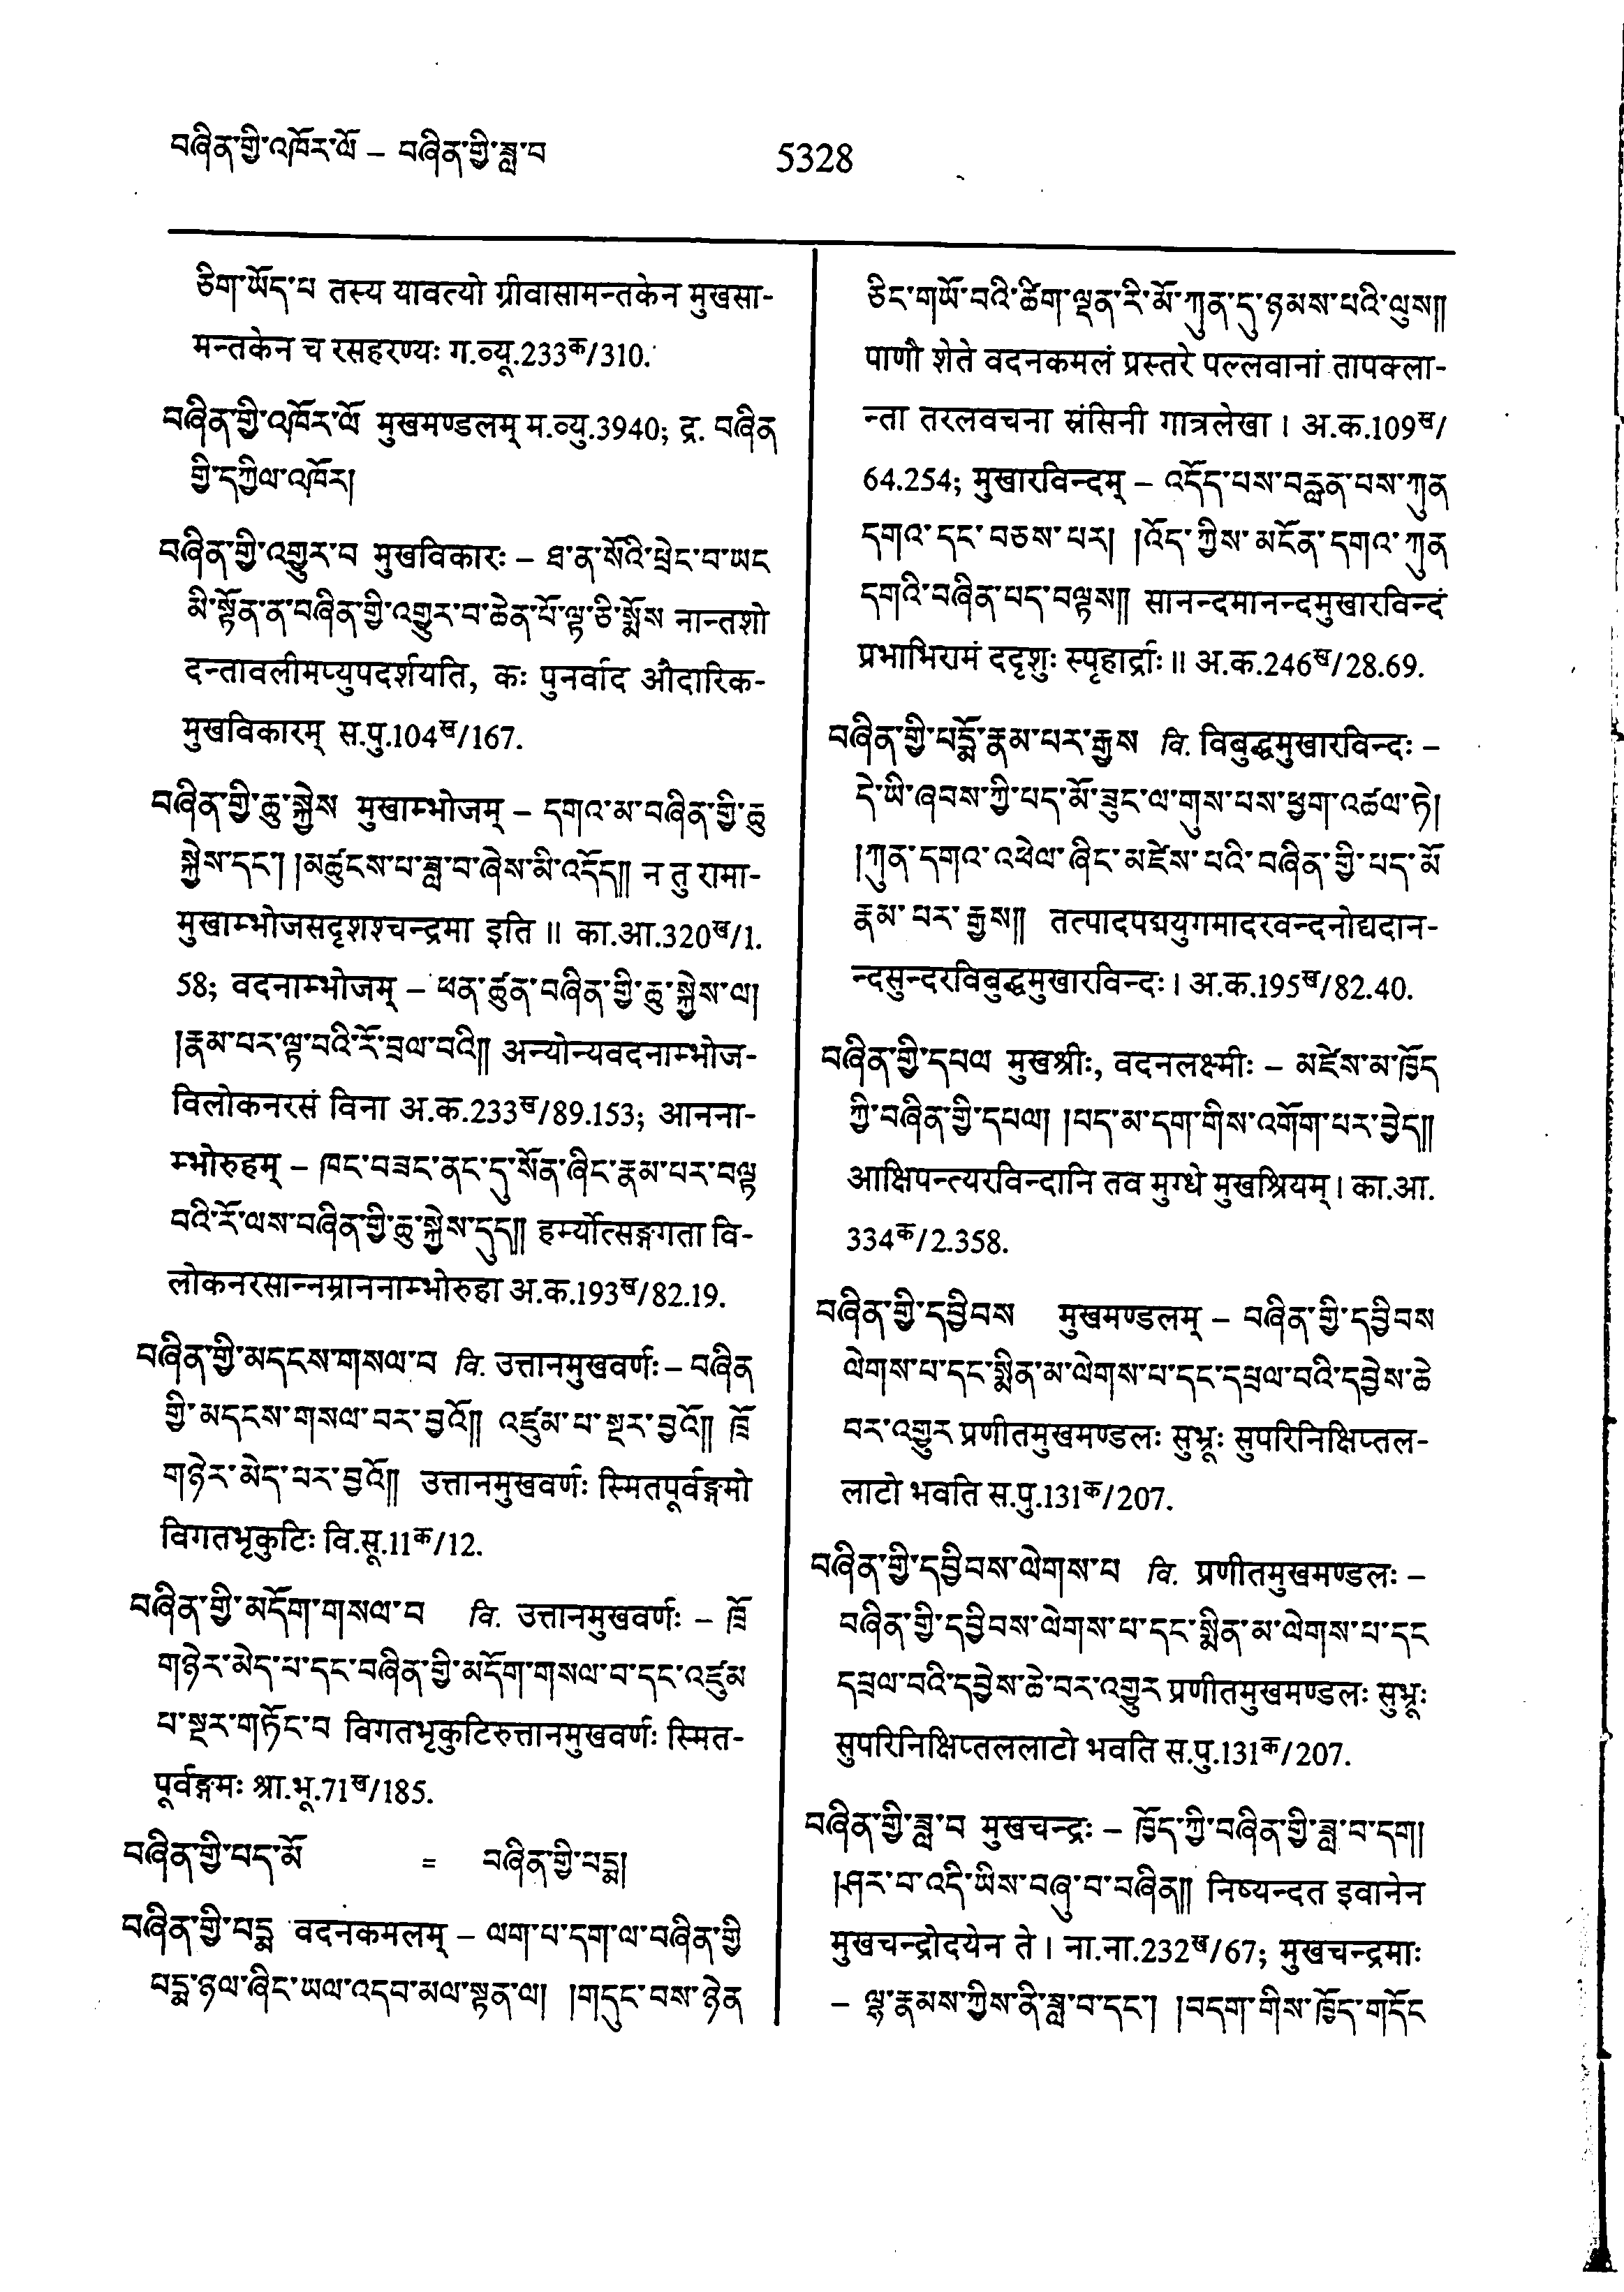 བཞིན་གྱི་འཁོར་ལོ – བཞིན་གྱི་ཟླ་བ
5328
ཅིག་ཡོད་པ तस्य यावत्यो ग्रीवासामन्तकेन मुखसा-
मन्तकेन च रसहरण्यः ग.व्यू.233क/310.
བཞིན་གྱི་འཁོར་ལོ मुखमण्डलम् म.व्यु.3940; द्र. བཞིན
གྱི་དཀྱིལ་འཁོར།
བཞིན་གྱི་འགྱུར་བ मुखविकारः – ཐ་ན་སོའི་ཕྲེང་བ་ཡང
མི་སྟོན་ན་བཞིན་གྱི་འགྱུར་བ་ཆེན་པོ་ལྟ་ཅི་སྨོས नान्तशो
दन्तावलीमप्युपदर्शयति, कः पुनर्वाद औदारिक-
मुखविकारम् स.पु.104ख/167.
བཞིན་གྱི་ཆུ་སྐྱེས मुखाम्भोजम् – དགའ་མ་བཞིན་གྱི་ཆུ
སྐྱེས་དང་། །མཚུངས་པ་ཟླ་བ་ཞེས་མི་འདོད།། न तु रामा-
मुखाम्भोजसदृशश्चन्द्रमा इति ॥ का.आ.320ख/1.
58; वदनाम्भोजम् – ཕན་ཚུན་བཞིན་གྱི་ཆུ་སྐྱེས་ལ།
།རྣམ་པར་ལྟ་བའི་རོ་བྲལ་བའི།། अन्योन्यवदनाम्भोज-
विलोकनरसं विना अ.क.233ख/89.153; आनना-
म्भोरुहम् – ཁང་བཟང་ནང་དུ་སོན་ཞིང་རྣམ་པར་བལྟ
བའི་རོ་ལས་བཞིན་གྱི་ཆུ་སྐྱེས་དུད།། हर्म्योत्सङ्गगता वि-
लोकनरसान्नम्राननाम्भोरुहा अ.क.193ख/82.19.
བཞིན་གྱི་མདངས་གསལ་བ वि. उत्तानमुखवर्णः – བཞིན
གྱི་མདངས་གསལ་བར་བྱའོ།། འཛུམ་པ་སྔར་བྱའོ།། ཁྲོ
གཉེར་མེད་པར་བྱའོ།། उत्तानमुखवर्णः स्मितपूर्वङ्गमो
विगतभृकुटिः वि.सू.11क/12.
བཞིན་གྱི་མདོག་གསལ་བ वि. उत्तानमुखवर्णः – ཁྲོ
གཉེར་མེད་པ་དང་བཞིན་གྱི་མདོག་གསལ་བ་དང་འཛུམ
པ་སྔར་གཏོང་བ विगतभृकुटिरुत्तानमुखवर्णः स्मित-
पूर्वङ्गमः श्रा.भू.71ख/185.
བཞིན་གྱི་པད་མོ = བཞིན་གྱི་པདྨ།
བཞིན་གྱི་པདྨ वदनकमलम् – ལག་པ་དག་ལ་བཞིན་གྱི
པདྨ་ཉལ་ཞིང་ཡལ་འདབ་མལ་སྟན་ལ། །གདུང་བས་ཉེན
ཅིང་གཡོ་བའི་ཚིག་ལྡན་རི་མོ་ཀུན་དུ་ཉམས་པའི་ལུས།།
पाणौ शेते वदनकमलं प्रस्तरे पल्लवानां तापक्ला-
न्ता तरलवचना स्रंसिनी गात्रलेखा । अ.क.109ख/
64.254; मुखारविन्दम् – འདོད་པས་བརླན་པས་ཀུན
དགའ་དང་བཅས་པར། །འོད་ཀྱིས་མངོན་དགའ་ཀུན
དགའི་བཞིན་པད་བལྟས།། सानन्दमानन्दमुखारविन्दं
प्रभाभिरामं ददृशुः स्पृहार्द्राः ॥ अ.क.246ख/28.69.
བཞིན་གྱི་པདྨོ་རྣམ་པར་རྒྱས वि. विबुद्धमुखारविन्दः –
དེ་ཡི་ཞབས་ཀྱི་པད་མོ་ཟུང་ལ་གུས་པས་ཕྱག་འཚལ་ཏེ།
།ཀུན་དགའ་འཕེལ་ཞིང་མཛེས་པའི་བཞིན་གྱི་པད་མོ
རྣམ་པར་རྒྱས།། तत्पादपद्मयुगमादरवन्दनोद्यदान-
न्दसुन्दरविबुद्धमुखारविन्दः । अ.क.195ख/82.40.
བཞིན་གྱི་དཔལ मुखश्रीः, वदनलक्ष्मीः – མཛེས་མ་ཁྱོད
ཀྱི་བཞིན་གྱི་དཔལ། །པད་མ་དག་གིས་འགོག་པར་བྱེད།།
आक्षिपन्त्यरविन्दानि तव मुग्धे मुखश्रियम् । का.आ.
334क/2.358.
བཞིན་གྱི་དབྱིབས मुखमण्डलम् – བཞིན་གྱི་དབྱིབས
ལེགས་པ་དང་སྨིན་མ་ལེགས་པ་དང་དཔྲལ་བའི་དབྱེས་ཆེ
བར་འགྱུར प्रणीतमुखमण्डलः सुभ्रूः सुपरिनिक्षिप्तल-
लाटो भवति स.पु.131क/207.
བཞིན་གྱི་དབྱིབས་ལེགས་པ वि. प्रणीतमुखमण्डलः –
བཞིན་གྱི་དབྱིབས་ལེགས་པ་དང་སྨིན་མ་ལེགས་པ་དང
དཔྲལ་བའི་དབྱེས་ཆེ་བར་འགྱུར प्रणीतमुखमण्डलः सुभ्रूः
सुपरिनिक्षिप्तललाटो भवति स.पु.131क/207.
བཞིན་གྱི་ཟླ་བ मुखचन्द्रः – ཁྱོད་ཀྱི་བཞིན་གྱི་ཟླ་བ་དག།
།ཤར་བ་འདི་ཡིས་བཞུ་བ་བཞིན།། निष्यन्दत इवानेन
मुखचन्द्रोदयेन ते । ना.ना.232ख/67; मुखचन्द्रमाः
– ལྷ་རྣམས་ཀྱིས་ནི་ཟླ་བ་དང་། །བདག་གིས་ཁྱོད་གདོང